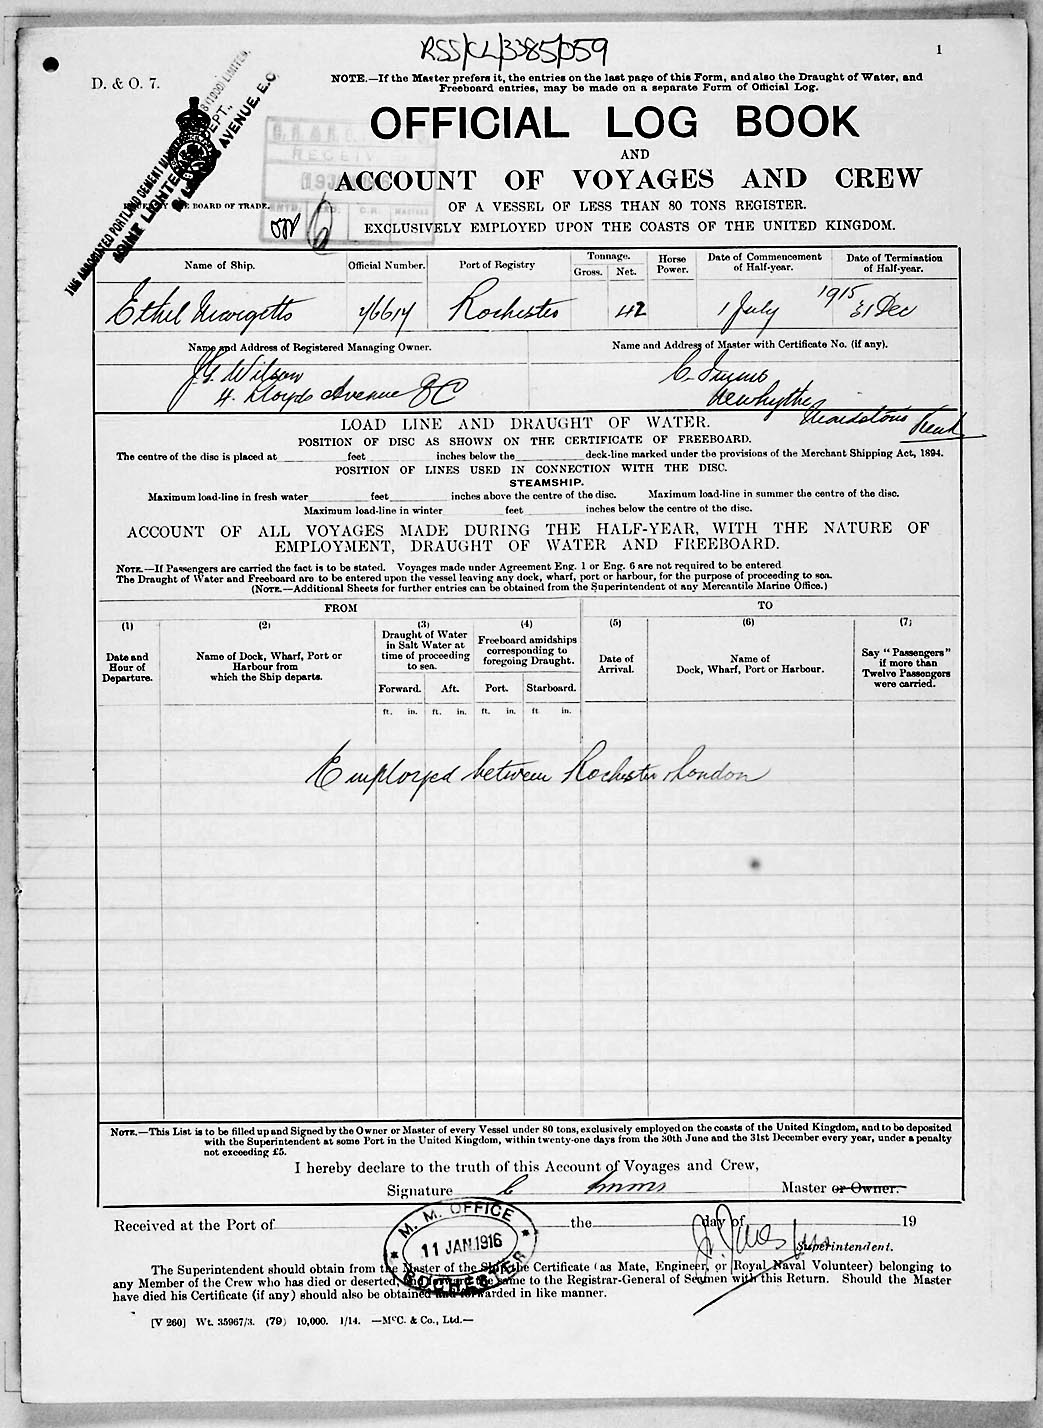 RSS/CL/3385/059
1
D. & O. 7.
NOTE.—If the Master prefers it, the entries on the last page of this Form, and also the Draught of Water, and
Freeboard entries, may be made on a separate Form of Official Log.
OFFICIAL LOG BOOK
AND
ACCOUNT OF VOYAGES AND CREW
OF A VESSEL OF LESS THAN 80 TONS REGISTER.
EXCLUSIVELY EMPLOYED UPON THE COASTS OF THE UNITED KINGDOM.
THE ASSOCIATED PORTLAND CEMENT (1900) LIMITED,
LIGHTERAGE DEPT.,
AVENUE, E.C.
BOARD OF TRADE.
RECEIV
6
Name of Ship.
Official Number.
Port of Registry
Tonnage.
Gross. Net.
Horse Power.
Date of Commencement of Half-year.
Date of Termination of Half-year.
Ethel Margetts
Rochester
42
1 July
1915
31 Dec
Name and Address of Registered Managing Owner.
Name and Address of Master with Certificate No. (if any).
J. G. Wilson
4. Lloyds Avenue EC
C. Imms
Newhythe
Maidstone Kent
LOAD LINE AND DRAUGHT OF WATER.
POSITION OF DISC AS SHOWN ON THE CERTIFICATE OF FREEBOARD.
The centre of the disc is placed at feet inches below the deck-line marked under the provisions of the Merchant Shipping Act, 1894.
POSITION OF LINES USED IN CONNECTION WITH THE DISC.
STEAMSHIP.
Maximum load-line in fresh water feet inches above the centre of the disc. Maximum load-line in summer the centre of the disc.
Maximum load-line in winter feet inches below the centre of the disc.
ACCOUNT OF ALL VOYAGES MADE DURING THE HALF-YEAR, WITH THE NATURE OF
EMPLOYMENT, DRAUGHT OF WATER AND FREEBOARD.
NOTE.—If Passengers are carried the fact is to be stated. Voyages made under Agreement Eng. 1 or Eng. 6 are not required to be entered
The Draught of Water and Freeboard are to be entered upon the vessel leaving any dock, wharf, port or harbour, for the purpose of proceeding to sea.
(NOTE.—Additional Sheets for further entries can be obtained from the Superintendent of any Mercantile Marine Office.)
FROM
TO
(1)
Date and
Hour of
Departure.
(2)
Name of Dock, Wharf, Port or
Harbour from
which the Ship departs.
(3)
Draught of Water
in Salt Water at
time of proceeding
to sea.
Forward. Aft.
(4)
Freeboard amidships
corresponding to
foregoing Draught.
Port. Starboard.
(5)
Date of
Arrival.
(6)
Name of
Dock, Wharf, Port or Harbour.
(7)
Say "Passengers"
if more than
Twelve Passengers
were carried.
ft. in. ft. in. ft. in. ft in.
Employed between Rochester & London
NOTE.—This List is to be filled up and Signed by the Owner or Master of every Vessel under 80 tons, exclusively employed on the coasts of the United Kingdom, and to be deposited
with the Superintendent at some Port in the United Kingdom, within twenty-one days from the 30th June and the 31st December every year, under a penalty
not exceeding £5.
I hereby declare to the truth of this Account of Voyages and Crew,
Signature C Imms Master or Owner.
Received at the Port of the day of 19
M. M. OFFICE
11 JAN. 1916
ROCHESTER
Superintendent.
The Superintendent should obtain from the Master of the Ship the Certificate (as Mate, Engineer, or Royal Naval Volunteer) belonging to
any Member of the Crew who has died or deserted, and forward the same to the Registrar-General of Seamen with this Return. Should the Master
have died his Certificate (if any) should also be obtained and forwarded in like manner.
[V 260] Wt. 35967/3. (79) 10,000. 1/14. —McC. & Co., Ltd.—